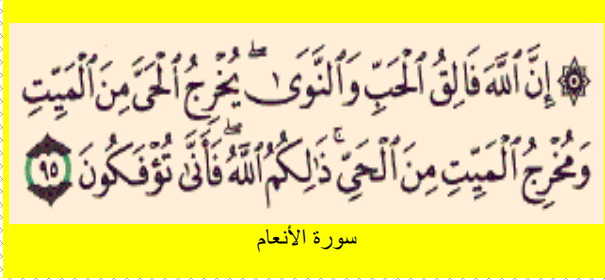 ۞ إِنَّ ٱللَّهَ فَالِقُ ٱلْحَبِّ وَٱلنَّوَىٰ ۖ يُخْرِجُ ٱلْحَىَّ مِنَ ٱلْمَيِّتِ
وَمُخْرِجُ ٱلْمَيِّتِ مِنَ ٱلْحَىِّ ۚ ذَٰلِكُمُ ٱللَّهُ ۖ فَأَنَّىٰ تُؤْفَكُونَ ٩٥
سورة الأنعام